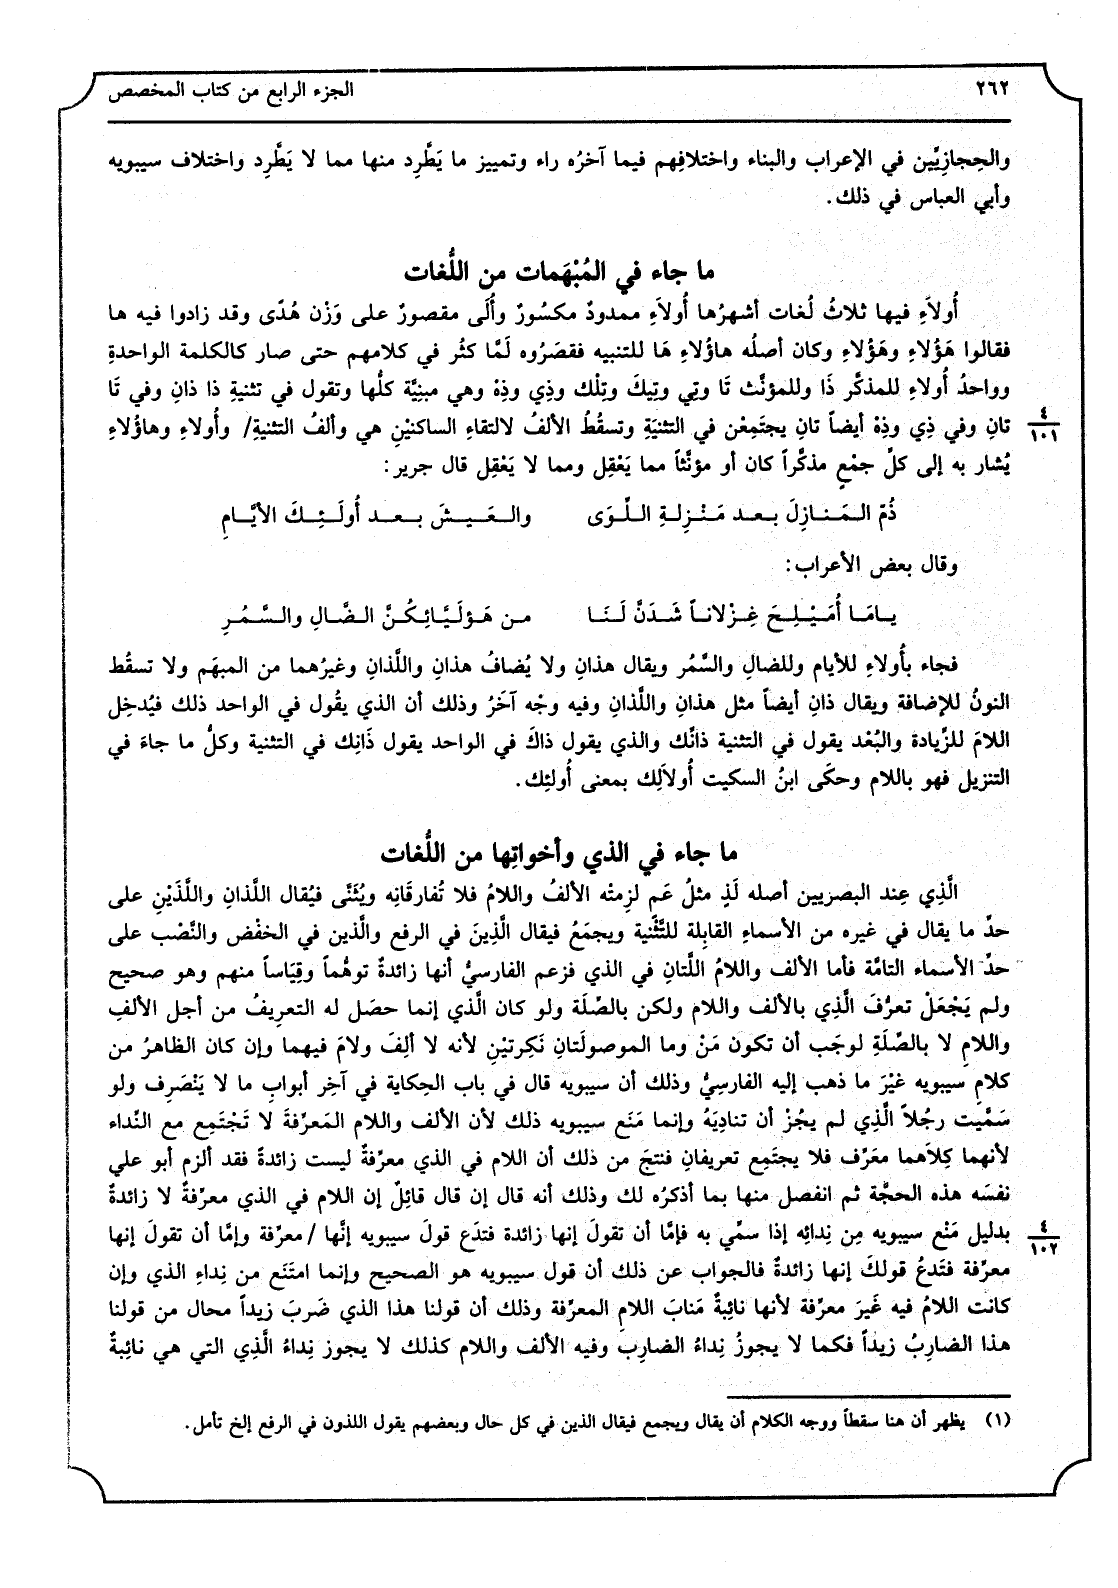 ٢٦٢ الجزء الرابع من كتاب المخصص
والحِجازِيِّين في الإعراب والبناء واختلافِهم فيما آخرُه راء وتمييز ما يَطَّرِد منها مما لا يَطَّرِد واختلاف سيبويه
وأبي العباس في ذلك.
ما جاء في المُبْهَمات من اللُّغات
أُولاَءِ فيها ثلاثُ لُغات أشهرُها أُولاَءِ ممدودٌ مكسُورٌ وأُلَى مقصورٌ على وَزْن هُدًى وقد زادوا فيه ها
فقالوا هَؤُلاءِ وهَؤُلاءِ وكان أصلُه هاؤُلاءِ هَا للتنبيه فقصَرُوه لَمَّا كثُر في كلامهم حتى صار كالكلمة الواحدةِ
وواحدُ أُولاءِ للمذكَّر ذَا وللمؤنَّث تَا وتِي وتِيكَ وتِلْك وذِي وذِهْ وهي مبنِيَّة كلُّها وتقول في تثنيةِ ذا ذانِ وفي تَا
تانِ وفي ذِي وذِهْ أيضاً تانِ يجتَمِعْن في التثنَيَةِ وتسقُط الألفُ لالتقاءِ الساكنَيْنِ هي وألفُ التثنيةِ/ وأُولاءِ وهاؤُلاءِ
٤
١٠١
يُشار به إلى كلِّ جمْعٍ مذكَّراً كان أو مؤنَّثاً مما يَعْقِل ومما لا يَعْقِل قال جرير:
ذُمّ الـمَـنـازِلَ بـعـد مَـنْـزِلـةِ الـلِّـوَى والـعَـيـشَ بـعـد أُولَـئِـكَ الأيَّـامِ
وقال بعض الأعراب:
يـامَـا أُمَـيْـلِـحَ غِـزْلانـاً شَـدَنَّ لَـنَـا مـن هَـؤُلَـيَّـائِـكُـنَّ الـضَّـالِ والـسَّـمُـرِ
فجاء بأُولاءِ للأيام وللضالِ والسَّمُر ويقال هذانِ ولا يُضافُ هذانِ واللَّذانِ وغيرُهما من المبهَم ولا تسقُط
النونُ للإضافة ويقال ذانِ أيضاً مثل هذانِ واللَّذانِ وفيه وجْه آخَرُ وذلك أن الذي يقُول في الواحد ذلك فيُدخِل
اللامَ للزِّيادة والبُعْد يقول في التثنية ذانِّك والذي يقول ذاكَ في الواحد يقول ذَانِك في التثنية وكلُّ ما جاءَ في
التنزيل فهو باللام وحكَى ابنُ السكيت أُولاَلِك بمعنى أُولئِك.
ما جاء في الذي وأخواتِها من اللُّغات
الَّذِي عِند البصريين أصله لَذٍ مثلُ عَمٍ لزِمتْه الألفُ واللامُ فلا تُفارقَانِه ويُثَنَّى فيُقال اللَّذانِ واللَّذَيْنِ على
حدِّ ما يقال في غيره من الأسماءِ القابِلة للتَّثْنية ويجمَعُ فيقال الَّذِينَ في الرفع والَّذين في الخفْض والنَّصْب على
حدِّ الأسماء التامَّة فأما الألف واللامُ اللَّتانِ في الذي فزعم الفارسيُّ أنها زائدةٌ توهُّماً وقِيَاساً منهم وهو صحيح
ولم يَجْعَلْ تعرُّفَ الَّذِي بالألف واللام ولكن بالصِّلَة ولو كان الَّذي إنما حصَل له التعرِيفُ من أجل الألفِ
واللامِ لا بالصِّلَةِ لوجَب أن تكون مَنْ وما الموصولَتانِ نَكِرتيْنِ لأنه لا ألِفَ ولامَ فيهما وإن كان الظاهرُ من
كلامِ سيبويه غيْرَ ما ذهب إليه الفارسِيُّ وذلك أن سيبويه قال في باب الحِكاية في آخِر أبوابِ ما لا يَنْصَرِف ولو
سَمَّيت رجُلاً الَّذِي لم يجُزْ أن تنادِيَهُ وإنما مَنَع سيبويه ذلك لأن الألف واللام المَعرِّفةَ لا تَجْتَمِع مع النِّداء
لأنهما كِلاَهما معَرِّف فلا يجتَمِع تعريفانِ فنتجَ من ذلك أن اللام في الذي معرِّفةٌ ليست زائدةً فقد ألزم أبو علي
نفسَه هذه الحجَّة ثم انفصل منها بما أذكرُه لك وذلك أنه قال إن قال قائِلٌ إن اللام في الذي معرِّفةٌ لا زائدةٌ
بدليل مَنْع سيبويه مِن نِدائِه إذا سمِّي به فإمَّا أن تقولَ إنها زائدة فتدَع قولَ سيبويه إنَّها /معرِّفة وإمَّا أن تقولَ إنها
٤
١٠٢
معرِّفة فتَدعُ قولكَ إنها زائدةٌ فالجواب عن ذلك أن قول سيبويه هو الصحيح وإنما امتَنَع من نِداءِ الذي وإن
كانت اللامُ فيه غَيرَ معرِّفة لأنها نائِبةٌ مَنابَ اللامِ المعرِّفة وذلك أن قولنا هذا الذي ضَربَ زيداً محال من قولنا
هذا الضارِبُ زيداً فكما لا يجوزُ نِداءُ الضارِب وفيه الألف واللام كذلك لا يجوز نِداءُ الَّذِي التي هي نائِبةٌ
(١) يظهر أن هنا سقطاً ووجه الكلام أن يقال ويجمع فيقال الذين في كل حال وبعضهم يقول اللذون في الرفع إلخ تأمل.